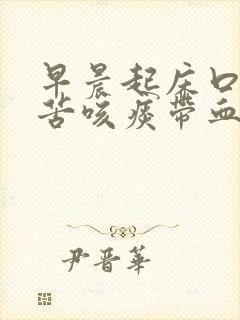 早晨起床口
苦咳痰带血
尹晋华